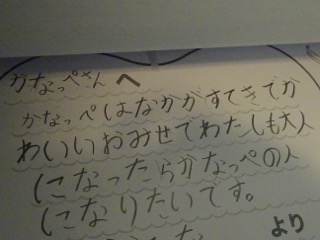 かなっぺさんへ
かなっぺはなかがすてきでか
わいいおみせでわたしも大人
になったらかなっぺの人
になりたいです。
より